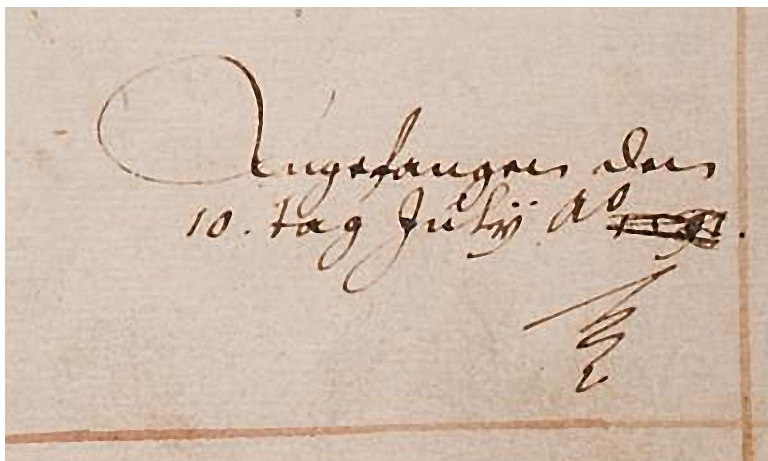 Angefangen den
10. tag July Aº